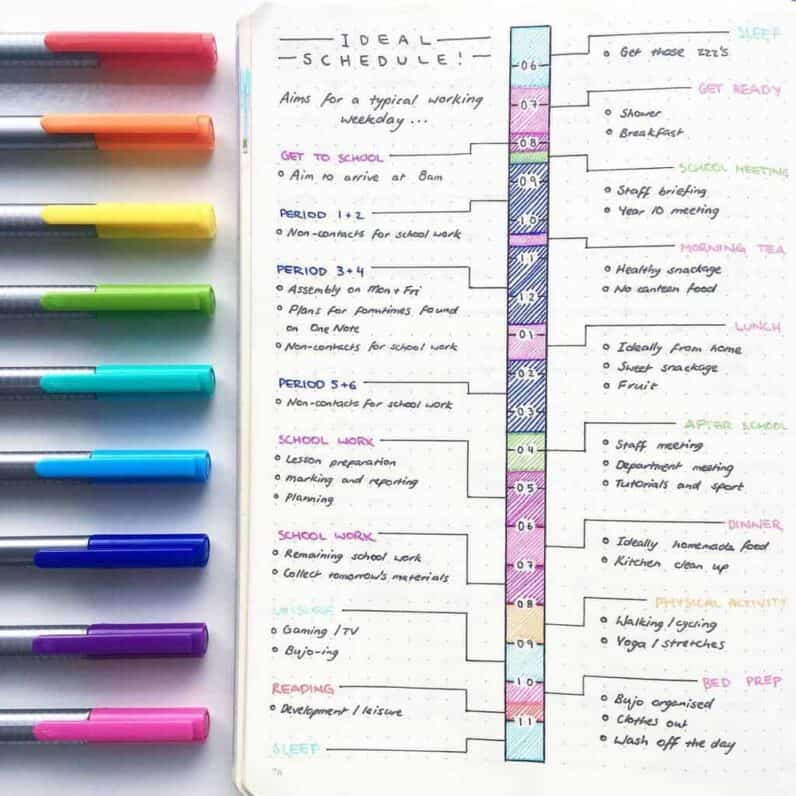 IDEAL
SCHEDULE!
Aims for a typical working
weekday...
GET TO SCHOOL
Aim to arrive at 8am
PERIOD 1+2
Non-contacts for school work
PERIOD 3+4
Assembly on Mon + Fri
Plans for fomtimes found
on One Note
Non-contacts for school work
PERIOD 5+6
Non-contacts for school work
SCHOOL WORK
Lesson preparation
marking and reporting
Planning
SCHOOL WORK
Remaining school work
Collect tomorrow's materials
Gaming / TV
Bujo-ing
READING
Development / leisure
SLEEP
06
07
08
09
10
11
12
01
02
03
04
05
06
07
08
09
10
11
SLEEP
Get those zzz's
GET READY
Shower
Breakfast
SCHOOL MEETING
Staff briefing
Year 10 meeting
MORNING TEA
Healthy snackage
No canteen food
LUNCH
Ideally from home
Sweet snackage
Fruit
AFTER SCHOOL
Staff meeting
Department meeting
Tutorials and sport
DINNER
Ideally homemade food
Kitchen clean up
PHYSICAL ACTIVITY
Walking / cycling
Yoga / stretches
BED PREP
Bujo organised
Clothes out
Wash off the day